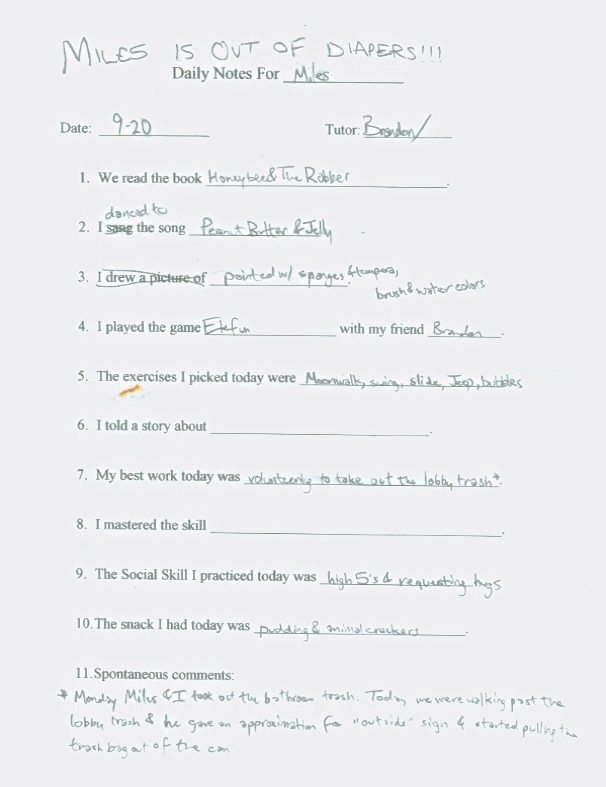 MILES IS OUT OF DIAPERS!!!
Daily Notes For Miles
Date: 9-20 Tutor: Brandon
1. We read the book Honeybee & The Robber.
danced to
2. I sang the song Peanut Butter & Jelly.
3. I drew a picture of painted w/ sponges & tempera,
brush & water colors
4. I played the game Elefun with my friend Brandon.
5. The exercises I picked today were Moonwalk, swing, slide, Jeep, bubbles
6. I told a story about
7. My best work today was volunteering to take out the lobby trash*.
8. I mastered the skill
9. The Social Skill I practiced today was high 5's & requesting hugs
10. The snack I had today was pudding & animal crackers.
11. Spontaneous comments:
* Monday Miles & I took out the bathroom trash. Today we were walking past the
lobby trash & he gave an approximation for "outside" sign & started pulling the
trash bag out of the can.